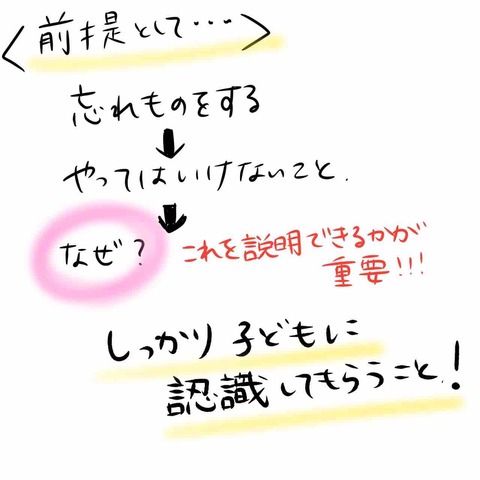 〈前提として・・・〉
忘れものをする
↓
やってはいけないこと.
↓
なぜ?
これを説明できるかが
重要!!!
しっかり子どもに
認識してもらうこと.!